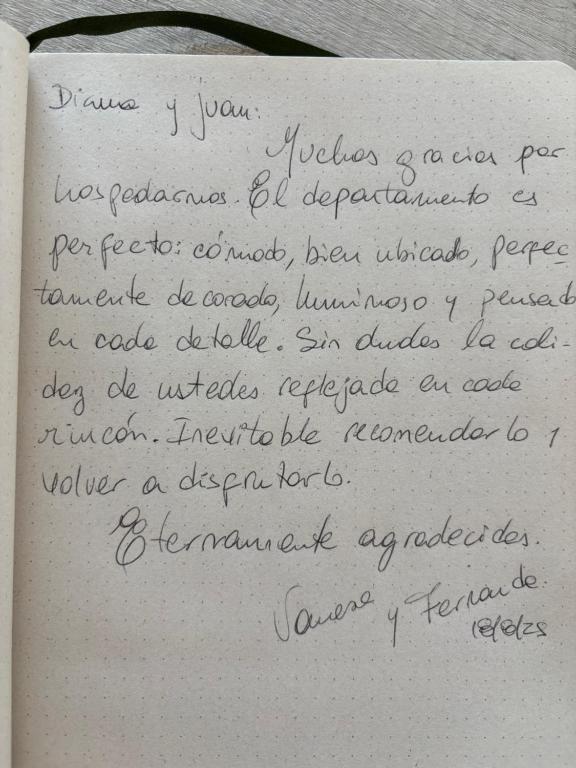 Diana y Juan:
Muchas gracias por
hospedarnos. El departamento es
perfecto: cómodo, bien ubicado, perfec-
tamente decorado, luminoso y pensado
en cada detalle. Sin dudas la cali-
dez de ustedes reflejada en cada
rincón. Inevitable recomendarlo y
volver a disfrutarlo.
Eternamente agradecidas.
Vanesa y Fernanda.
18/8/25